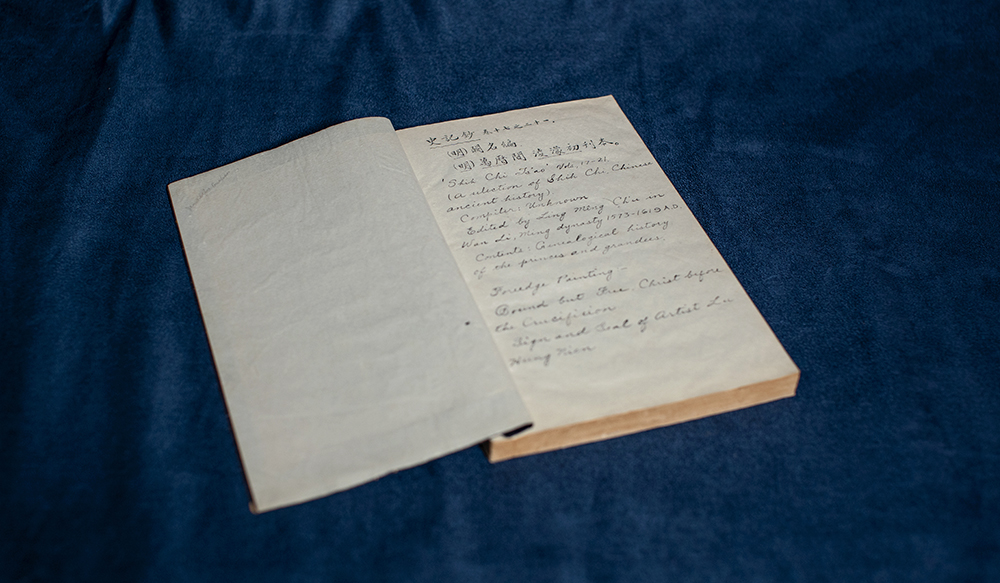 史記鈔 卷十七之二十一.
(明) 闕名編
(明) 萬曆間 凌濛初刊本。
'Shih Chi Ts'ao' Vols. 17-21
(A selection of Shih Chi, Chinese
ancient history)
Compiler: Unknown
Edited by Ling Meng Ch'u in
Wan Li, Ming dynasty 1573-1619 A.D.
Contents: Genealogical history
of the princes and grandees.
Foredge Painting -
Bound but Free: Christ before
the Crucifixion
Sign and Seal of Artist Lu
Hung Nien